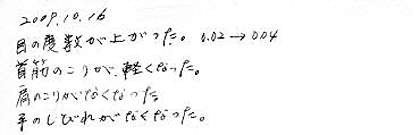 2009.10.16
目の度数が上がった。0.02→0.04
首筋のこりが、軽くなった。
肩のこりがなくなった
手のしびれがなくなった。